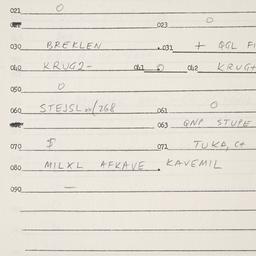 021 0
023 0
030 BREKLEN 031 + QGL FI
040 KRUG2- 041 0 042 KRUG+
050 0
060 STEJSL 268 061 0
063 QNP STUPE
070 $ 071 TUKA, C+
080 MILXL AFKAVE . KAVEMIL
090 —